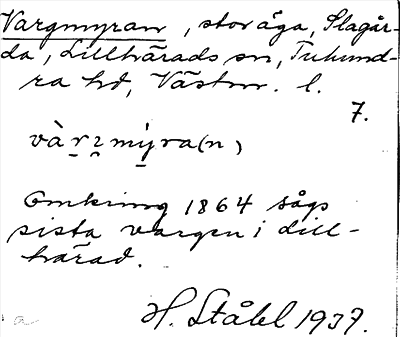 Vargmyran, stor äga, Slagår-
da, Lillhärads sn, Tuhund-
ra hd, Västm. l.
7.
Omkring 1864 sågs
sista vargen i Lill-
härad.
H. Ståhl 1937.